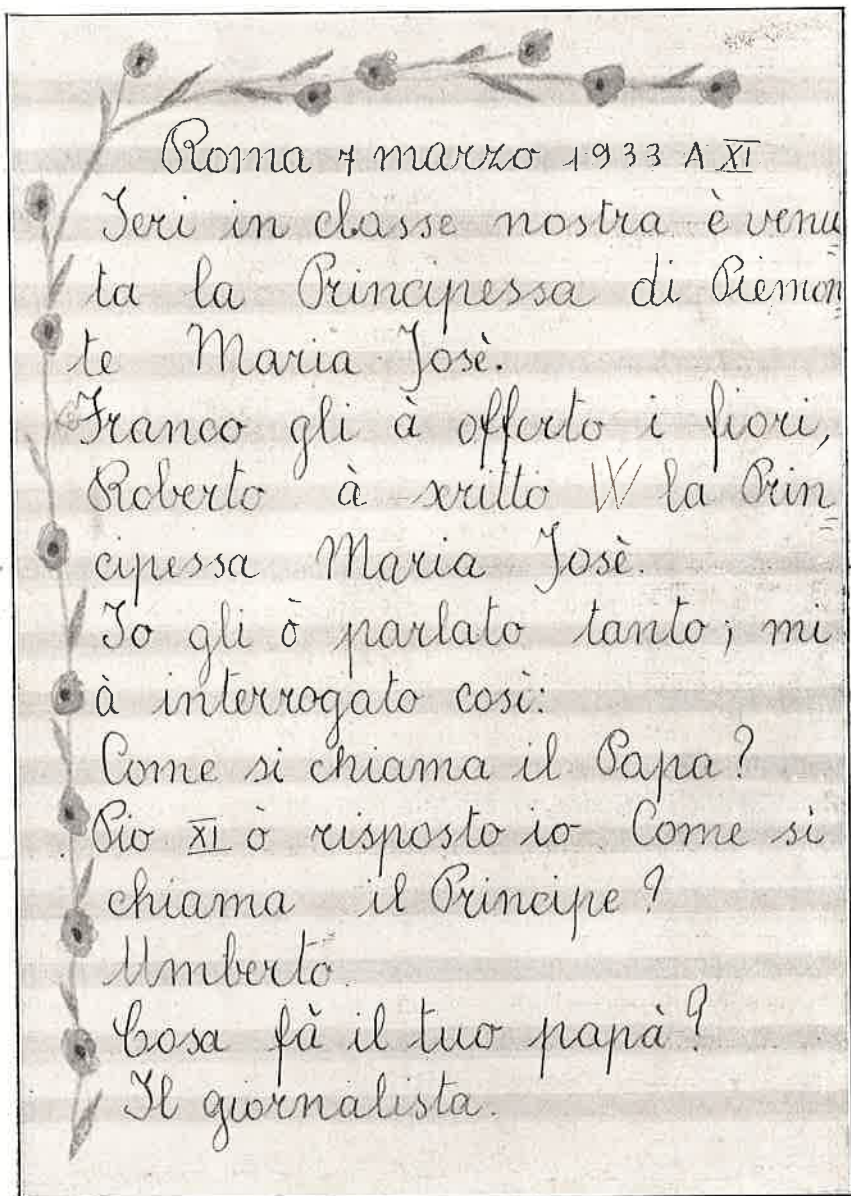 Roma 7 marzo 1933 A XI
Ieri in classe nostra è venu
ta la Principessa di Piemon
te Maria Josè.
Franco gli à offerto i fiori,
Roberto à scritto W la Prin
cipessa Maria Josè.
Io gli ò parlato tanto; mi
à interrogato così:
Come si chiama il Papa?
Pio XI ò risposto io. Come si
chiama il Principe?
Umberto.
Cosa fà il tuo papà?
Il giornalista.